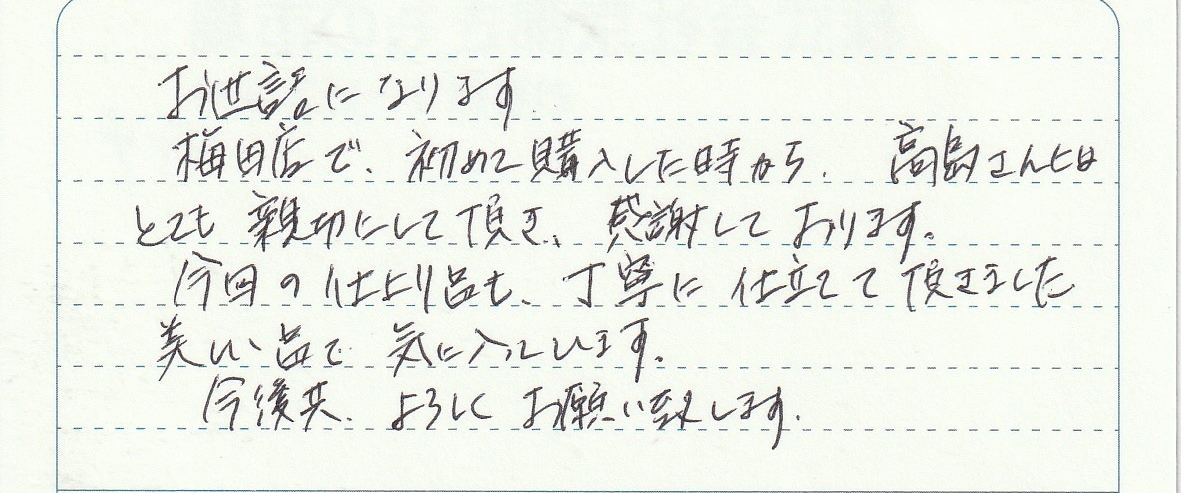 お世話になります
梅田店で、初めて購入した時から、高島さんには
とても親切にして頂き、感謝しております。
今回の仕上り品も、丁寧に仕立てて頂きました
美しい品で気に入ています。
今後共、よろしくお願い致します。